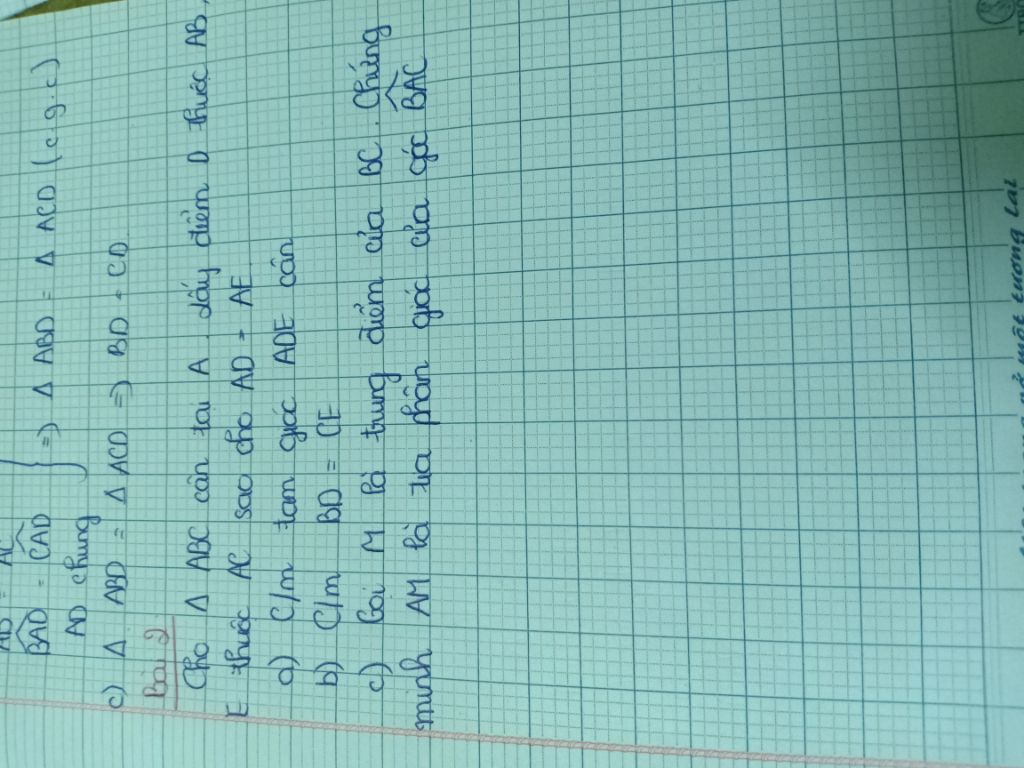 AC
BAD = CAD
AD chung
} => Δ ABD = Δ ACD (c.g.c)
c) Δ ABD = Δ ACD => BD = CD
Bài 2
Cho Δ ABC cân tại A. dấy điểm D thuộc AB,
E thuộc AC sao cho AD = AE.
a) C/m tam giác ADE cân
b) C/m BD = CE
c) Gọi M là trung điểm của BC. Chứng
minh AM là tia phân giác của góc BAC
một tương lai